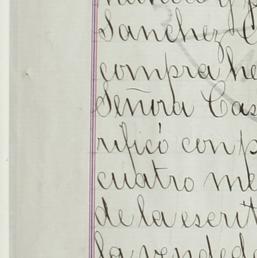 Sanchez C
compra he
Señora Cas
rificó con p
cuatro me
de la escrit
la vended